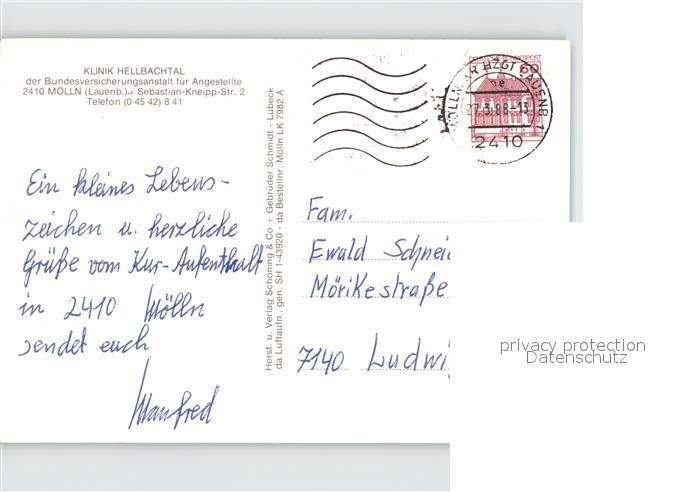 KLINIK HELLBACHTAL
der Bundesversicherungsanstalt für Angestellte
2410 MÖLLN (Lauenb.) Sebastian-Kneipp-Str. 2
Telefon (0 45 42) 8 41
Ein kleines Lebens-
zeichen u. herzliche
Grüße vom Kur-Aufenthalt
in 2410 Mölln
sendet euch
Manfred
Herst. u. Verlag Schöning & Co + Gebrüder Schmidt - Lübeck
da Luftaufn., gen. SH 1-43920 - da Bestellnr. Mölln LK 7982 A
60
2410
Fam.
Ewald Schnei
Mörikestraße
7140 Ludwi
privacy protection
Datenschutz